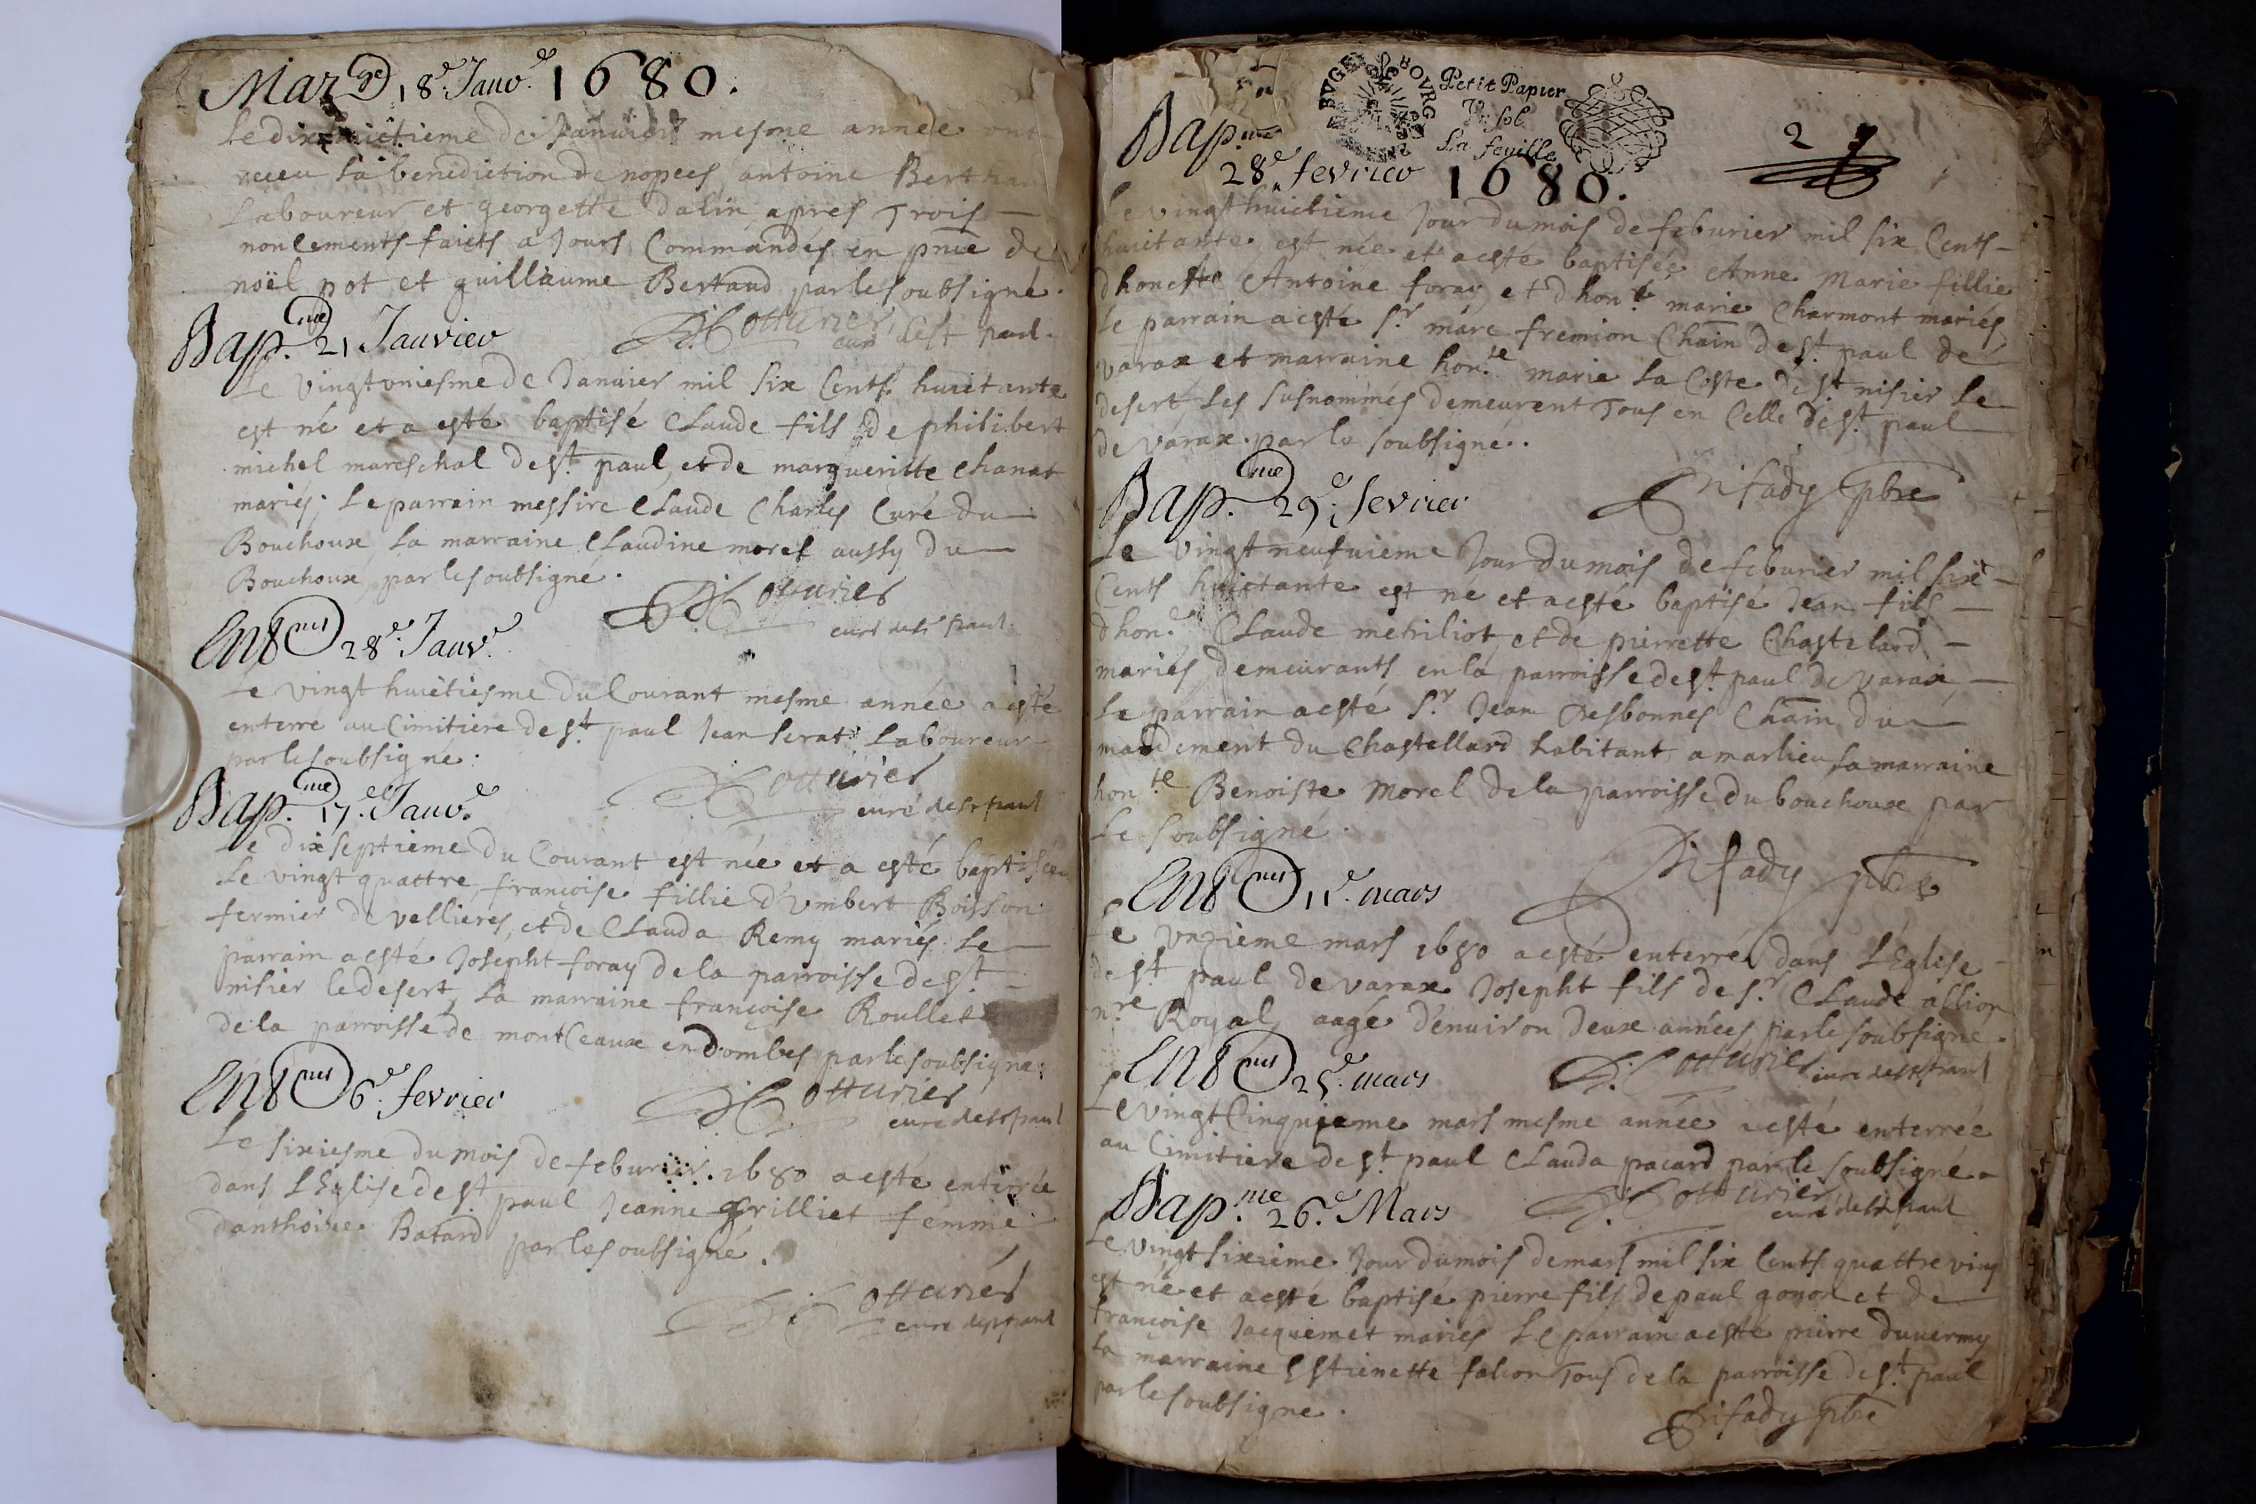 Mar.ge 18e. Janv.e 1680.
Le dixhuictieme de Januier mesme année ont
receu la benediction de nopces antoine
Laboureur et georgette dalin apres Trois
noncements faicts a Jours Commandés en pnce de
noël pot et guillaume Bertaud par le soubsigné.
Cotturier
curé de st paul.
Bap.me 21 Janvier
Le vingt vniesme de Januier mil six Cents huictante
est né et a esté baptisé Claude fils de philibert
michel mareschal de st. paul, et de margueritte Chanat
mariés. Le parrain messire Claude Charles Curé du
Bouchoux, la marraine Claudine morel aussy du
Bouchoux, par le soubsigné.
Cotturier
curé de st paul.
Ent.mt 28e. Janv.r
Le vingt huictiesme du Courant mesme année a esté
enterré au Cimitiere de st. paul Jean serat Laboureur
par le soubsigné.
Cotturier
curé de st paul
Bap.me 17.e Janv.e
Le dixseptieme du Courant est née et a esté baptisée
le vingt quattre, françoise fillie d'vmbert Boisson
fermier de vellieres, et de Clauda Remy mariés. Le
parrain a esté Josepht foray de la parroisse de st.
nisier le desert, la marraine françoise Roullet
de la parroisse de montCeaux en Dombes par le soubsigné.
Cotturier
curé de st paul
Ent.mt 6e. fevrier
Le sixiesme du mois de feburier. 1680 a esté enterrée
dans L'Eglise de st. paul Jeanne grilliet femme
danthoine Batard par le soubsigné.
Cotturier
curé de st paul
BVGEY BOVRG
Petit Papier
la feuille
2
Bap.me
28e. fevrier 1680.
Le vingt huictieme Jour du mois de feburier mil six Cents
huictante est née et a esté baptisée Anne Marie fillie
d'honeste Antoine foray et d'hon.te marie Charmont mariés
Le parrain a esté S.r marc fremion Chain de st. paul de
varax et marraine hon.te marie la Coste de st. nisier le
desert Les susnommés demeurent Tous en Celle de st. paul
de varax. par le soubsigné.
Difady pbre
Bap.me 29e. fevrier
Le vingt neufuieme Jour du mois de feburier mil six
Cents huictante est né et a esté baptisé Jean fils
d'hon.e Claude metriliot, et de pierrette Chastelard
mariés demeurants en la parroisse de st. paul de varax
Le parrain a esté S.r Jean Desbonnes Chain du
mandement du Chastellard habitant a marlieu, la marraine
hon.te Benoiste Morel de la parroisse du bouchoux par
le soubsigné.
Difady pbre
Ent.mt 11e. mars
Le vnzieme mars 1680 a esté enterré dans L'Eglise
de st. paul de varax Josepht fils de S.r Claude allion
n.re Royal, aagé d'enuiron deux années par le soubsigné.
Cotturier curé de st paul
Ent.mt 25.e mars
Le vingt Cinquieme mars mesme année a esté enterrée
au Cimitiere de st. paul Clauda pacard par le soubsigné.
Cotturier
curé de st paul
Bap.me 26e. Mars
Le vingt sixieme Jour du mois de mars mil six Cents quattre ving
est né et a esté baptisé pierre fils de paul gonon et de
françoise Jacquemet mariés Le parrain a esté pierre duvermy
la marraine Estienette falcon Tous de la parroisse de st. paul
par le soubsigné.
Difady pbre